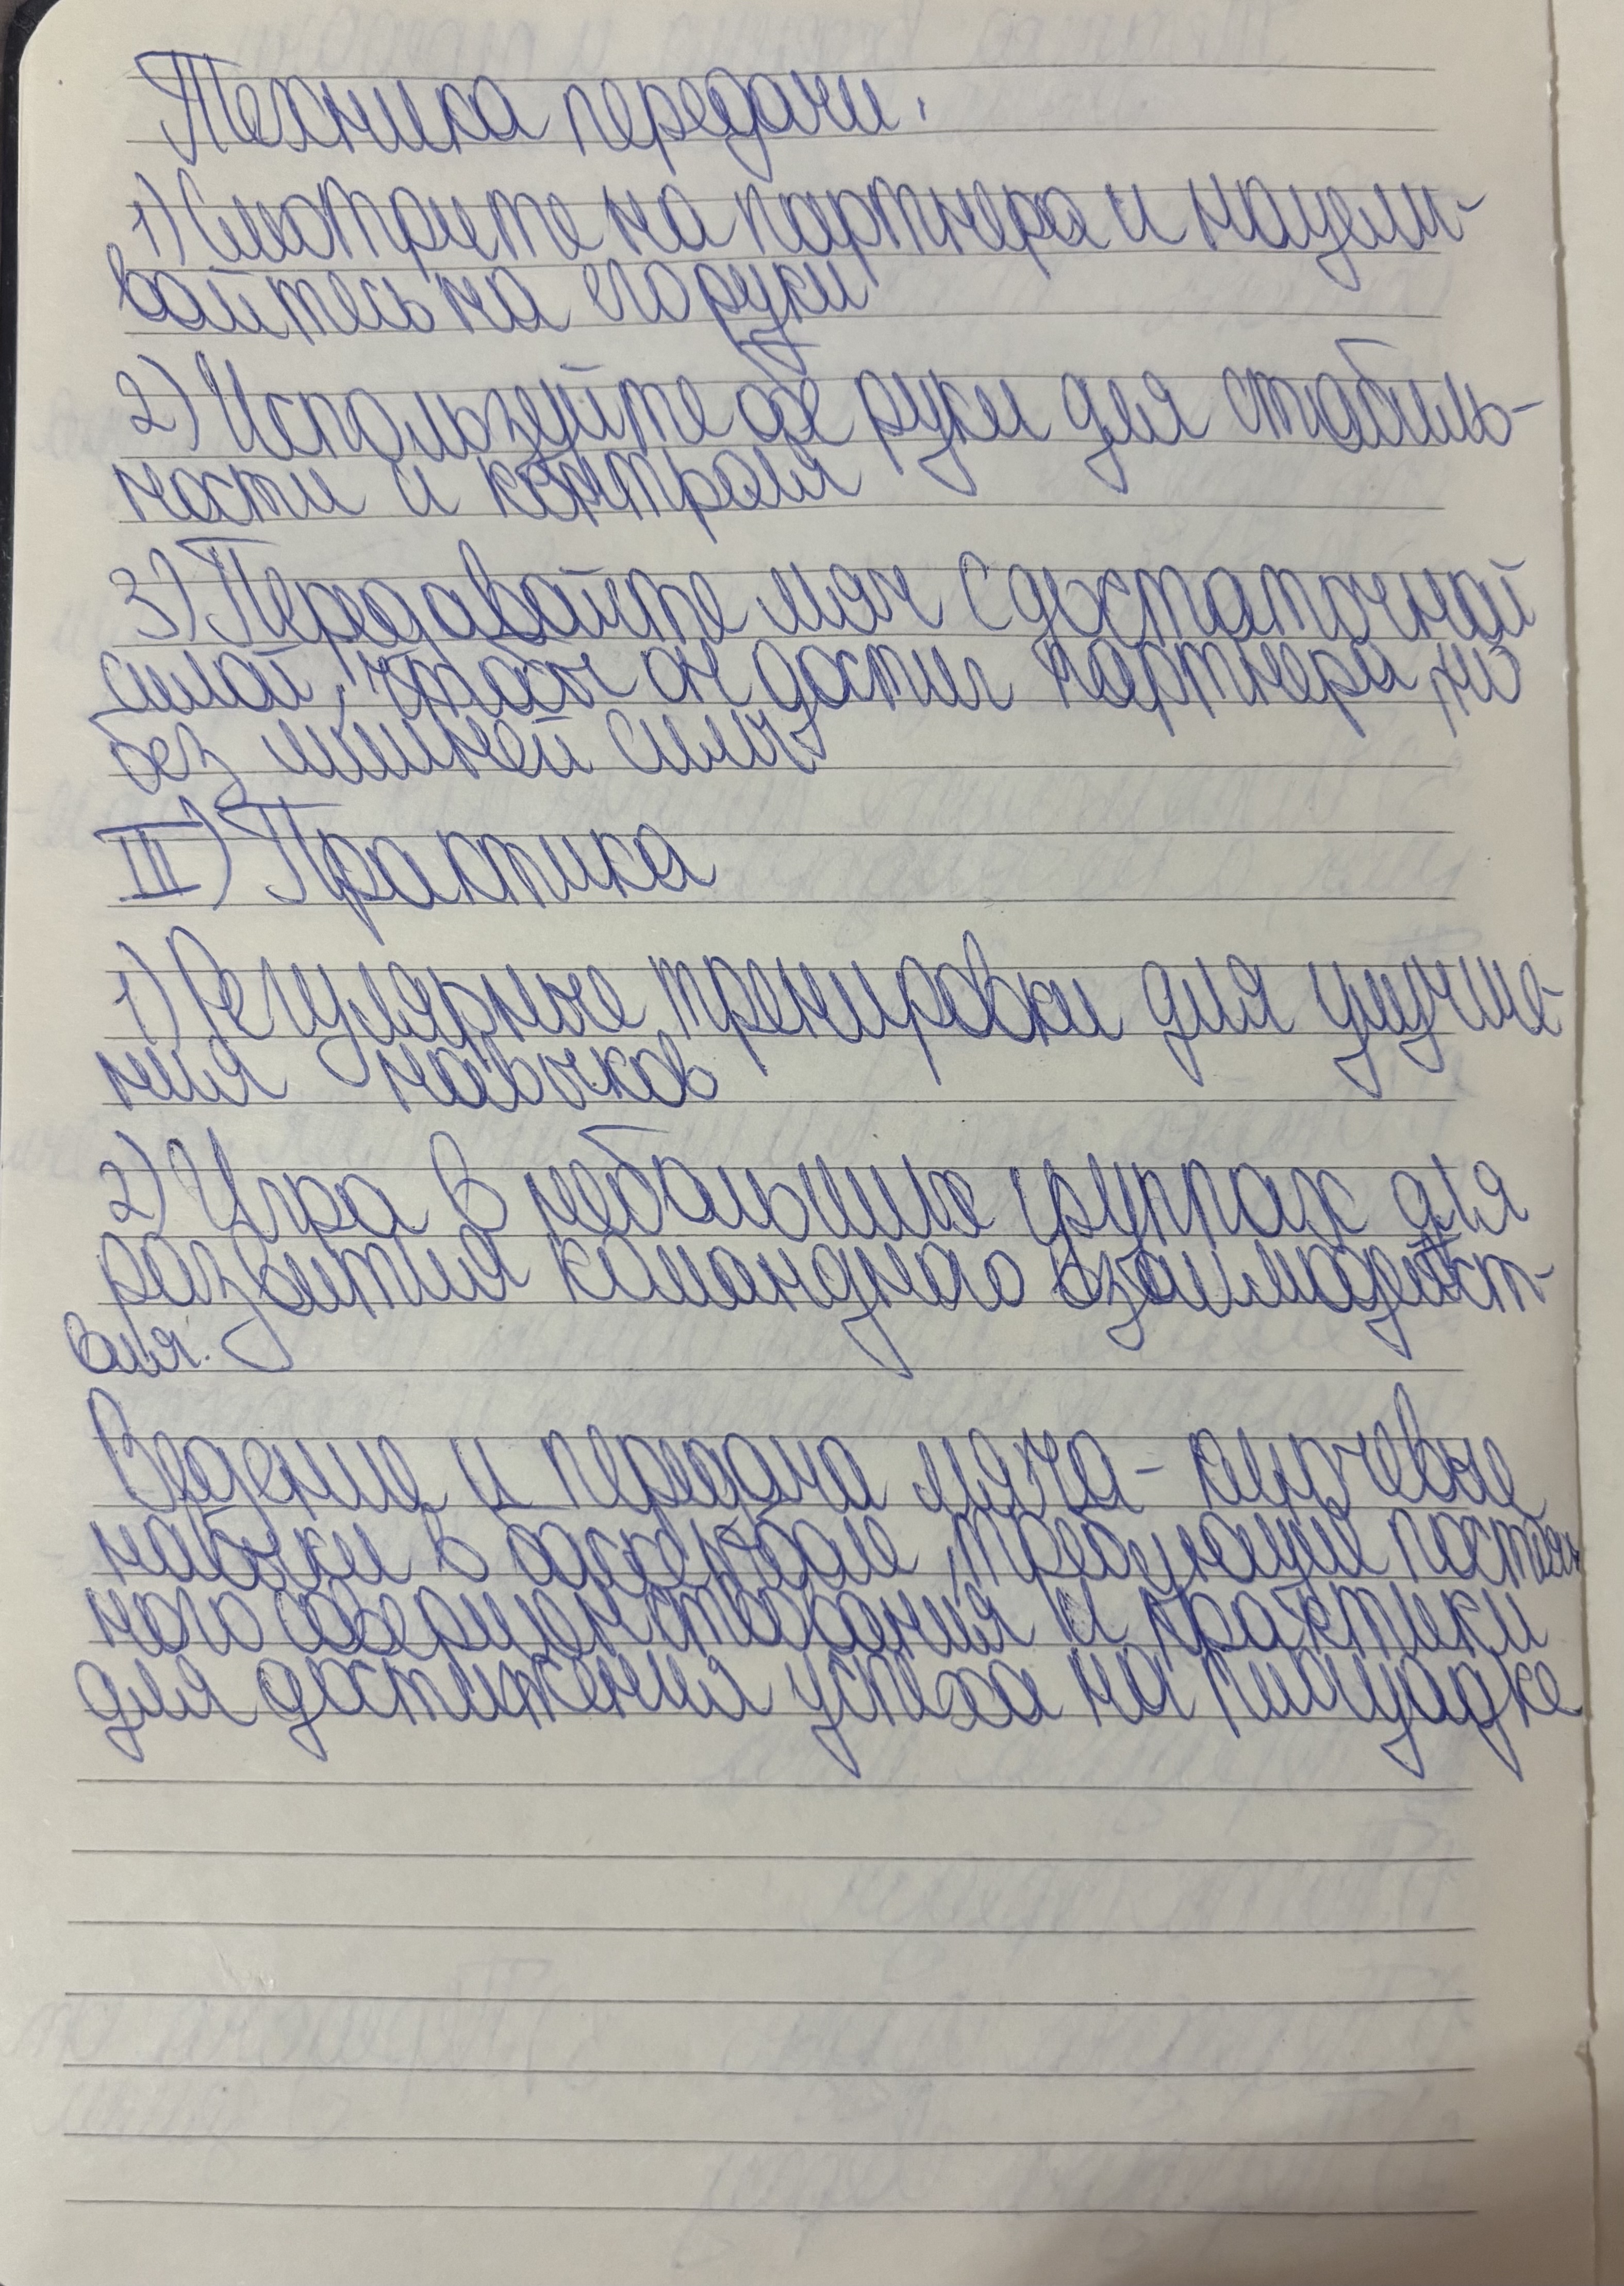 Техника передачи.
1) Смотрите на партнера и нацели-
вайтесь на его руки
2) Используйте обе руки для стабиль-
ности и контроля
3) Передавайте мяч с достаточной
силой, чтобы он достиг партнера, но
без лишней силы
III) Практика
1) Регулярные тренировки для улучше-
ния навыков
2) Игра в небольших группах для
развития командного взаимодейст-
вия.
Ведение и передача мяча - ключевые
навыки в баскетболе, требующие постоян
ного совершенствования и практики
для достижения успеха на площадке